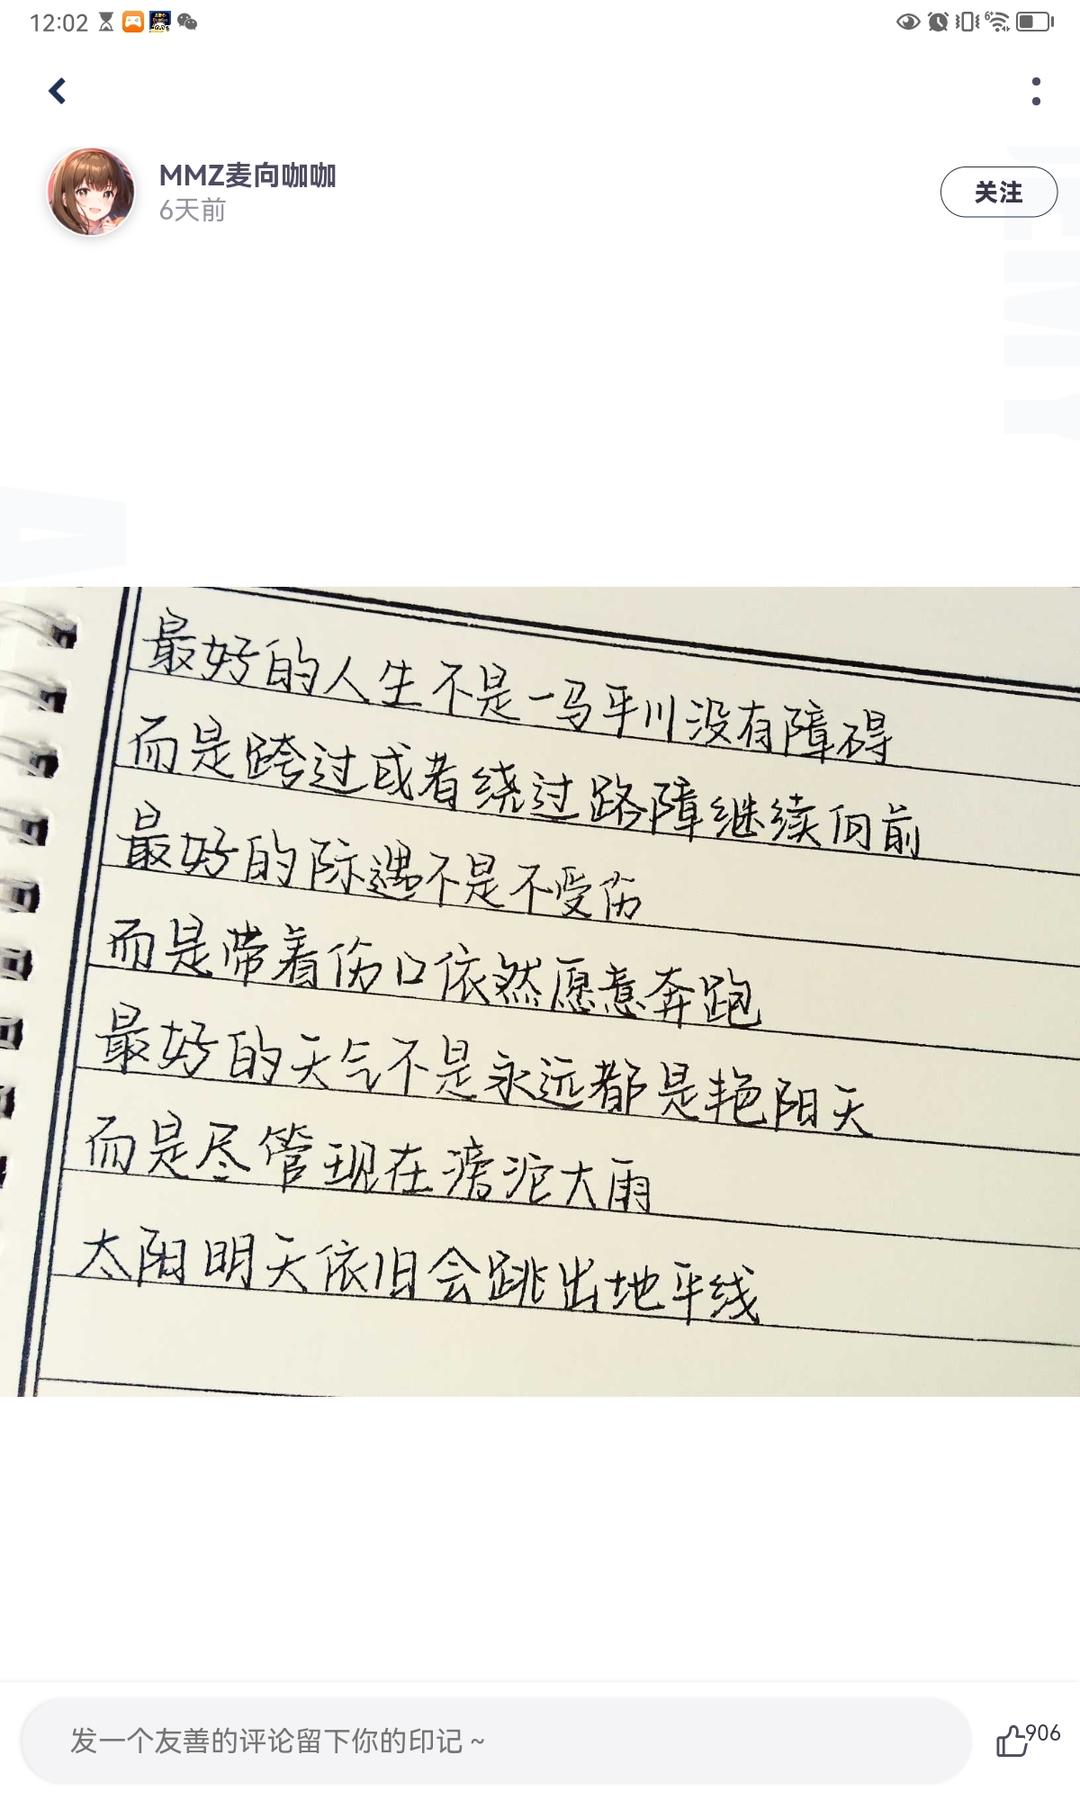 12:02
MMZ麦向咖咖
6天前
关注
最好的人生不是一马平川没有障碍
而是跨过或者绕过路障继续向前
最好的际遇不是不受伤
而是带着伤口依然愿意奔跑
最好的天气不是永远都是艳阳天
而是尽管现在滂沱大雨
太阳明天依旧会跳出地平线
发一个友善的评论留下你的印记 ~
906